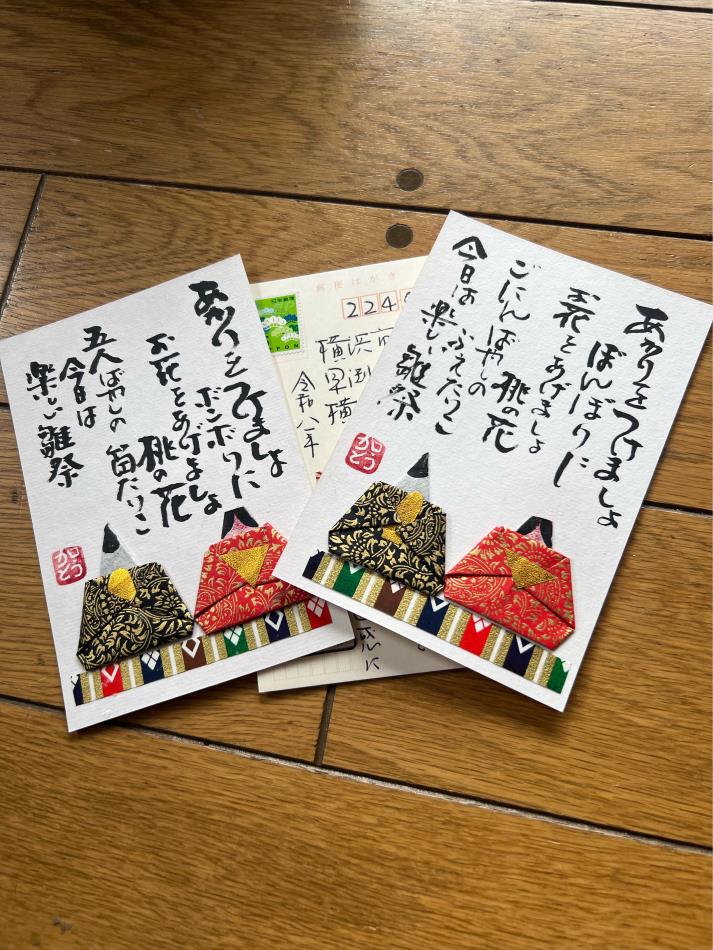 あかりをつけましょ
ボンボリに
お花をあげましょ
桃の花
五人ばやしの
笛たいこ
今日は
楽しい雛祭
加とう
郵便はがき
224
横浜
令和八年
あかりをつけましょ
ぼんぼりに
お花をあげましょ
桃の花
ごにんばやしの
ふえたいこ
今日は
楽しい雛祭
加とう